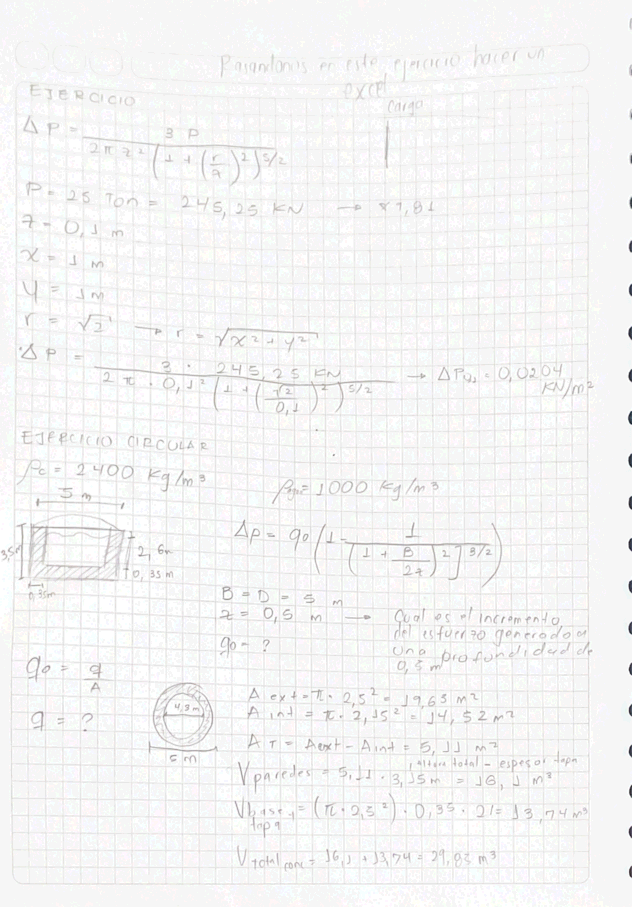 Basandonos en este ejercicio hacer un
excel
EJERCICIO
carga
ΔP = 3 P / 2π z² (1 + (r/z)²)^5/2
P = 25 Ton = 245,25 KN → × 9,81
z = 0,1 m
x = 1 m
y = 1 m
r = √2 → r = √x² + y²
ΔP = 3 · 245,25 KN / 2π · 0,1² (1 + (√2/0,1)²)^5/2 → ΔP = 0,0204 KN/m²
EJERCICIO CIRCULAR
ρc = 2400 Kg/m³
ρ = 1000 Kg/m³
5 m
3,5m
2,6m
0,35m
0,35m
Δp = q₀ (1 - 1 / [(1 + B/2z)²]^3/2)
B = D = 5 m
z = 0,5 m → Cual es el incremento
del esfuerzo generado a
una profundidad de
0,5 m
q₀ = ?
q₀ = q/A
q = ?
4,3m
5 m
A ext = π · 2,5² = 19,63 m²
A int = π · 2,15² = 14,52 m²
A T = Aext - Aint = 5,11 m²
altura total - espesor tapa
V paredes = 5,11 · 3,15m = 16,1 m³
V base y tapa = (π · 2,5²) · 0,35 · 2 = 13,74 m³
V total conc = 16,1 + 13,74 = 29,83 m³